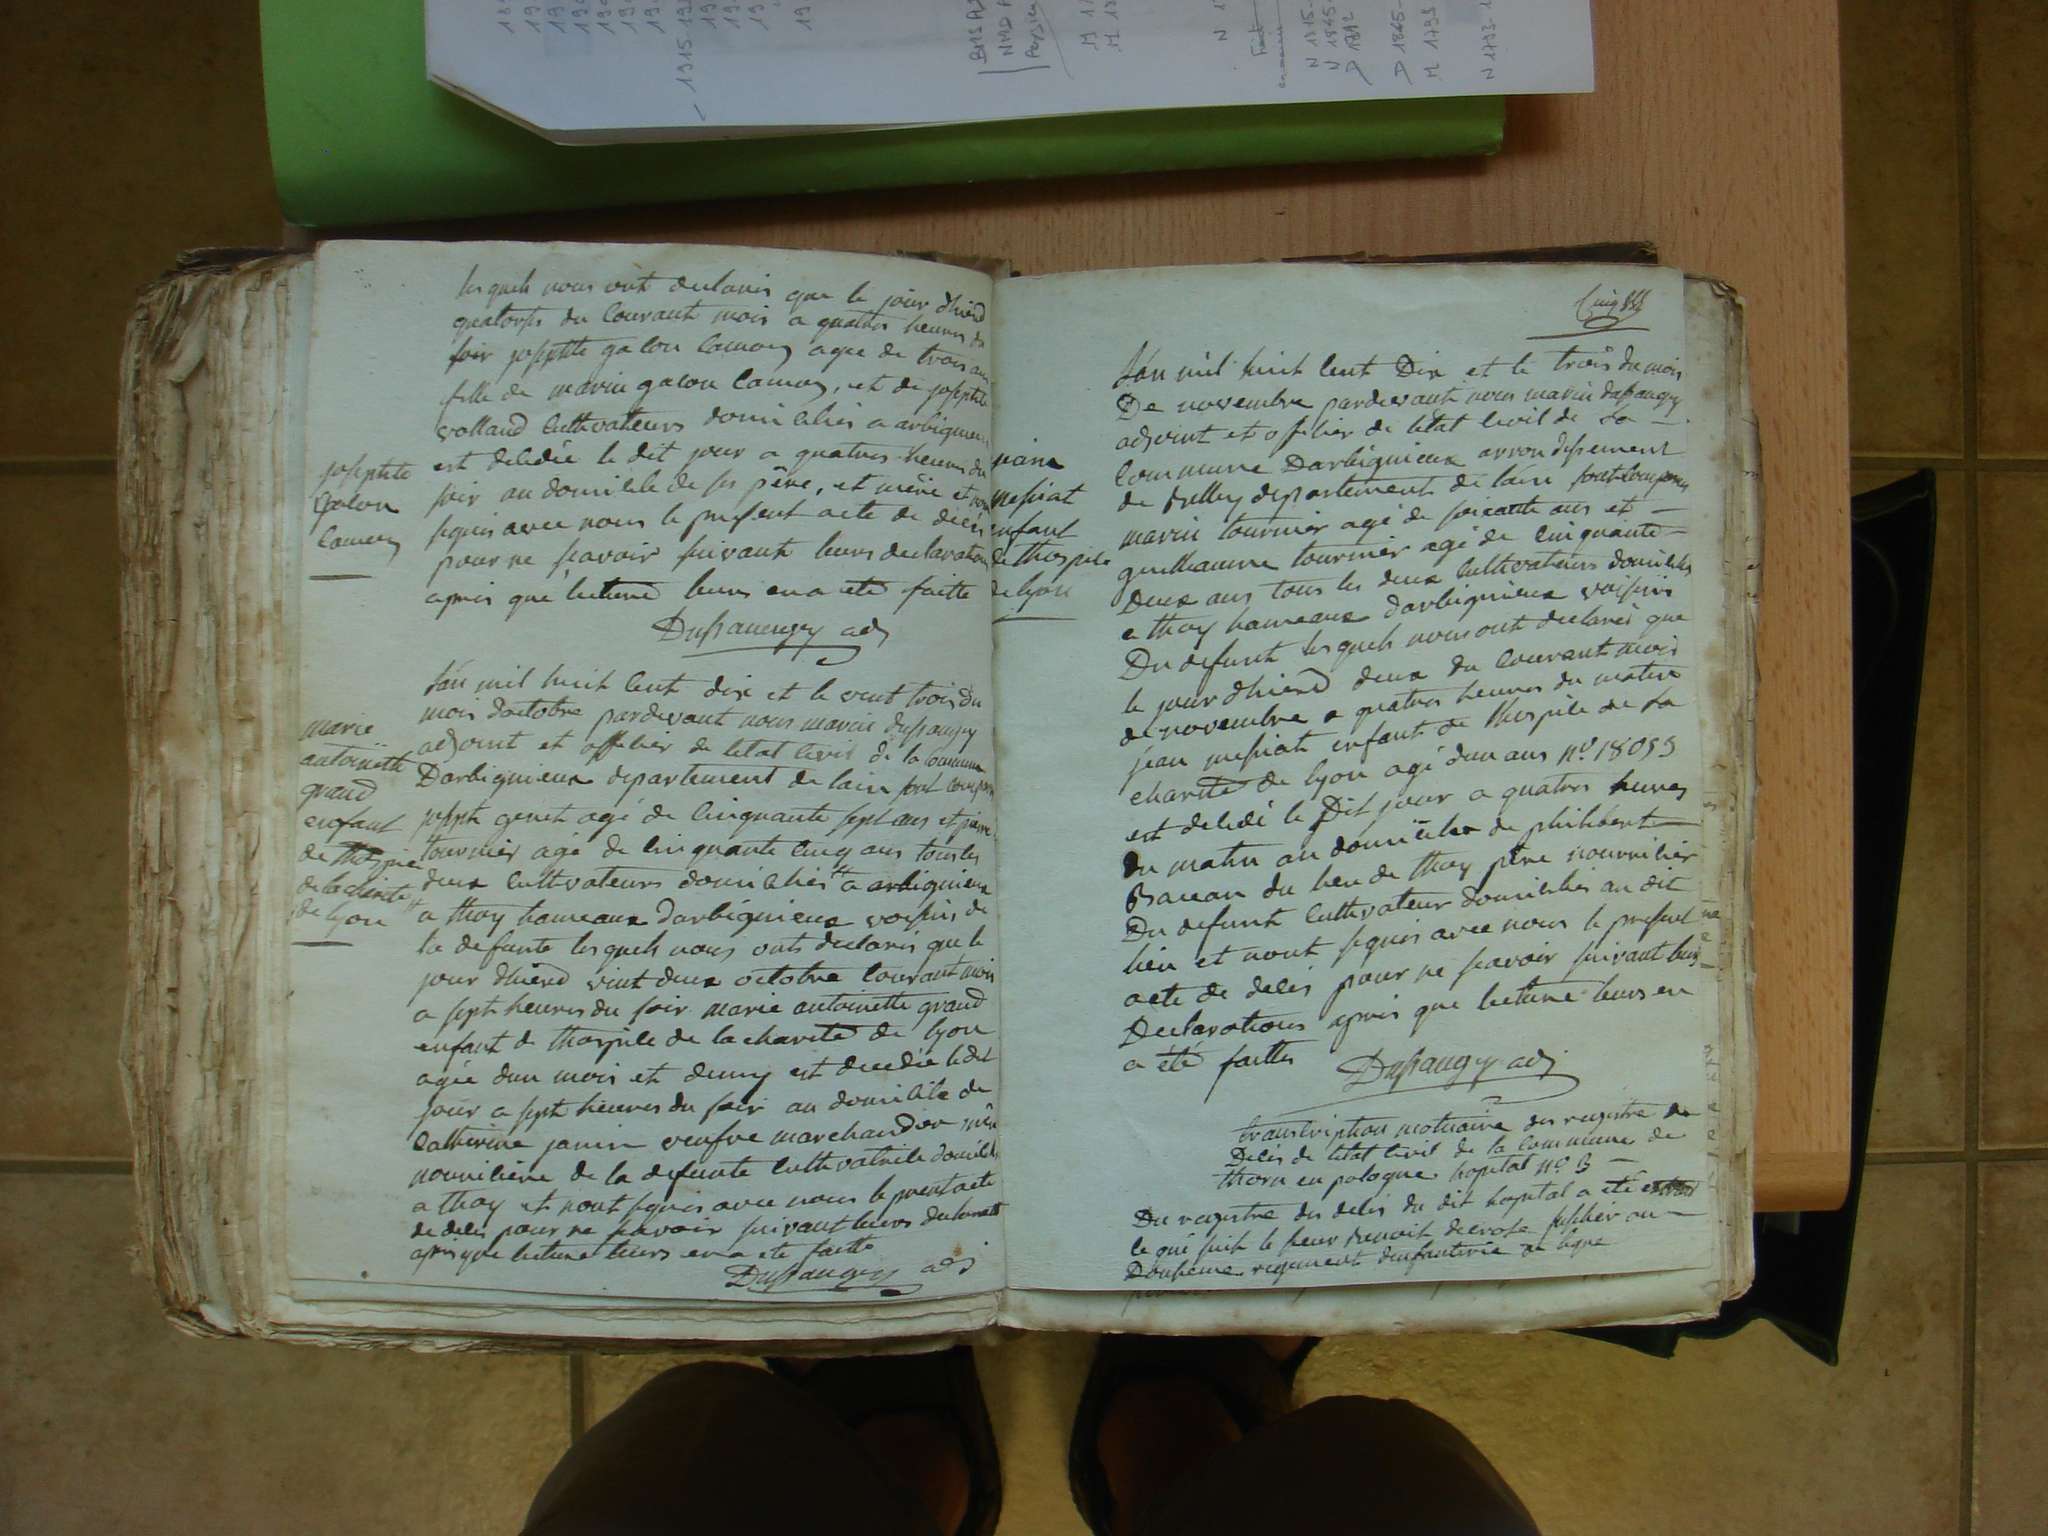 les quels nous ont declarés que le jour dhierd
quatorse du Courant mois a quatres heures du
soir josephte galon Camoz agee de trois ans
fille de marin galon Camoz, et de josephte
volland Cultivateurs domiciliés a arbignieux
est décédée le dit jour a quatres heures du
soir au domicile de ses père, et mère et nont
signés avec nous le present acte de décés
pour ne scavoir suivant leurs declarations
apres que lectured leurs en a eté faitte
Dussaugey adj
josephte
galon
Camoz
Lan mil huit Cent dix et le vent trois du
mois doctobre pardevant nous marin dussaugey
adjoint et officier de letat Civil de la Commune
Darbignieux departement de lain sont comparus
joseph genet agé de Cinquante sept ans et pierre
tournier agé de Cinquante Cinq ans tous les
deux Cultivateurs domiciliés a arbignieux
a thoy hameaux darbignieux voisins de
la defunte les quels nous onts declarés que le
jour dhierd vint deux octobre Courant mois
a sept heures du soir marie antoinette grand
enfant de thospice de la charité de lyon
agée dun mois et demy est decedée le dit
jour a sept heures du soir au domicile de
Catherine janin veufve marchandion mère
nourriciere de la defunte Cultivatrice domiciliée
a thoy et nont signés avec nous le present acte
de deces pour ne scavoir suivant leurs declaratt
apres que lecture leurs en a eté faitte
Dussaugey adj
marie
antoinette
grand
enfant
de thospice
de la charité
de lyon
Cinq
Lan mil huit Cent Dix et le trois du mois
De novembre pardevant nous marin dussaugey
adjoint et officier de létat Civil de La
Commune Darbignieux arrondissement
de Belley departement de lain sont Comparus
marin tournier agé de soixante ans et
guilleaume tournier agé de Cinquante
Deux ans tous les deux Cultivateurs domiciliés
a thoy hameaux darbignieux voisins
Du defunt les quels nous ont declarés que
le jour dhierd deux du Courant mois
de novembre a quatres heures du matin
jean messiat enfant de thospice de La
charité de lyon agé dun ans nº 18055
est décédé le Dit jour a quatres heures
Du matin au domicile de philibert
Baccon du lieu de thoy père nourricier
Du defunt Cultivateur domicilié au dit
lieu et nont signés avec nous le present
acte de décés pour ne scavoir suivant leurs
Declarations apres que lecture leurs en
a été faittes Dussaugey adj
jean
messiat
enfant
de thospice
de lyon
transcription motuaire des registre de
Deces de letat Civil de la Commune de
thorn en pologne hopital nº 3
Du registre des decès du dit hopital a été extrait
le qui suit le sieur Benoit decrose fusilier au
Dousieme regiment dinfanterie de ligne